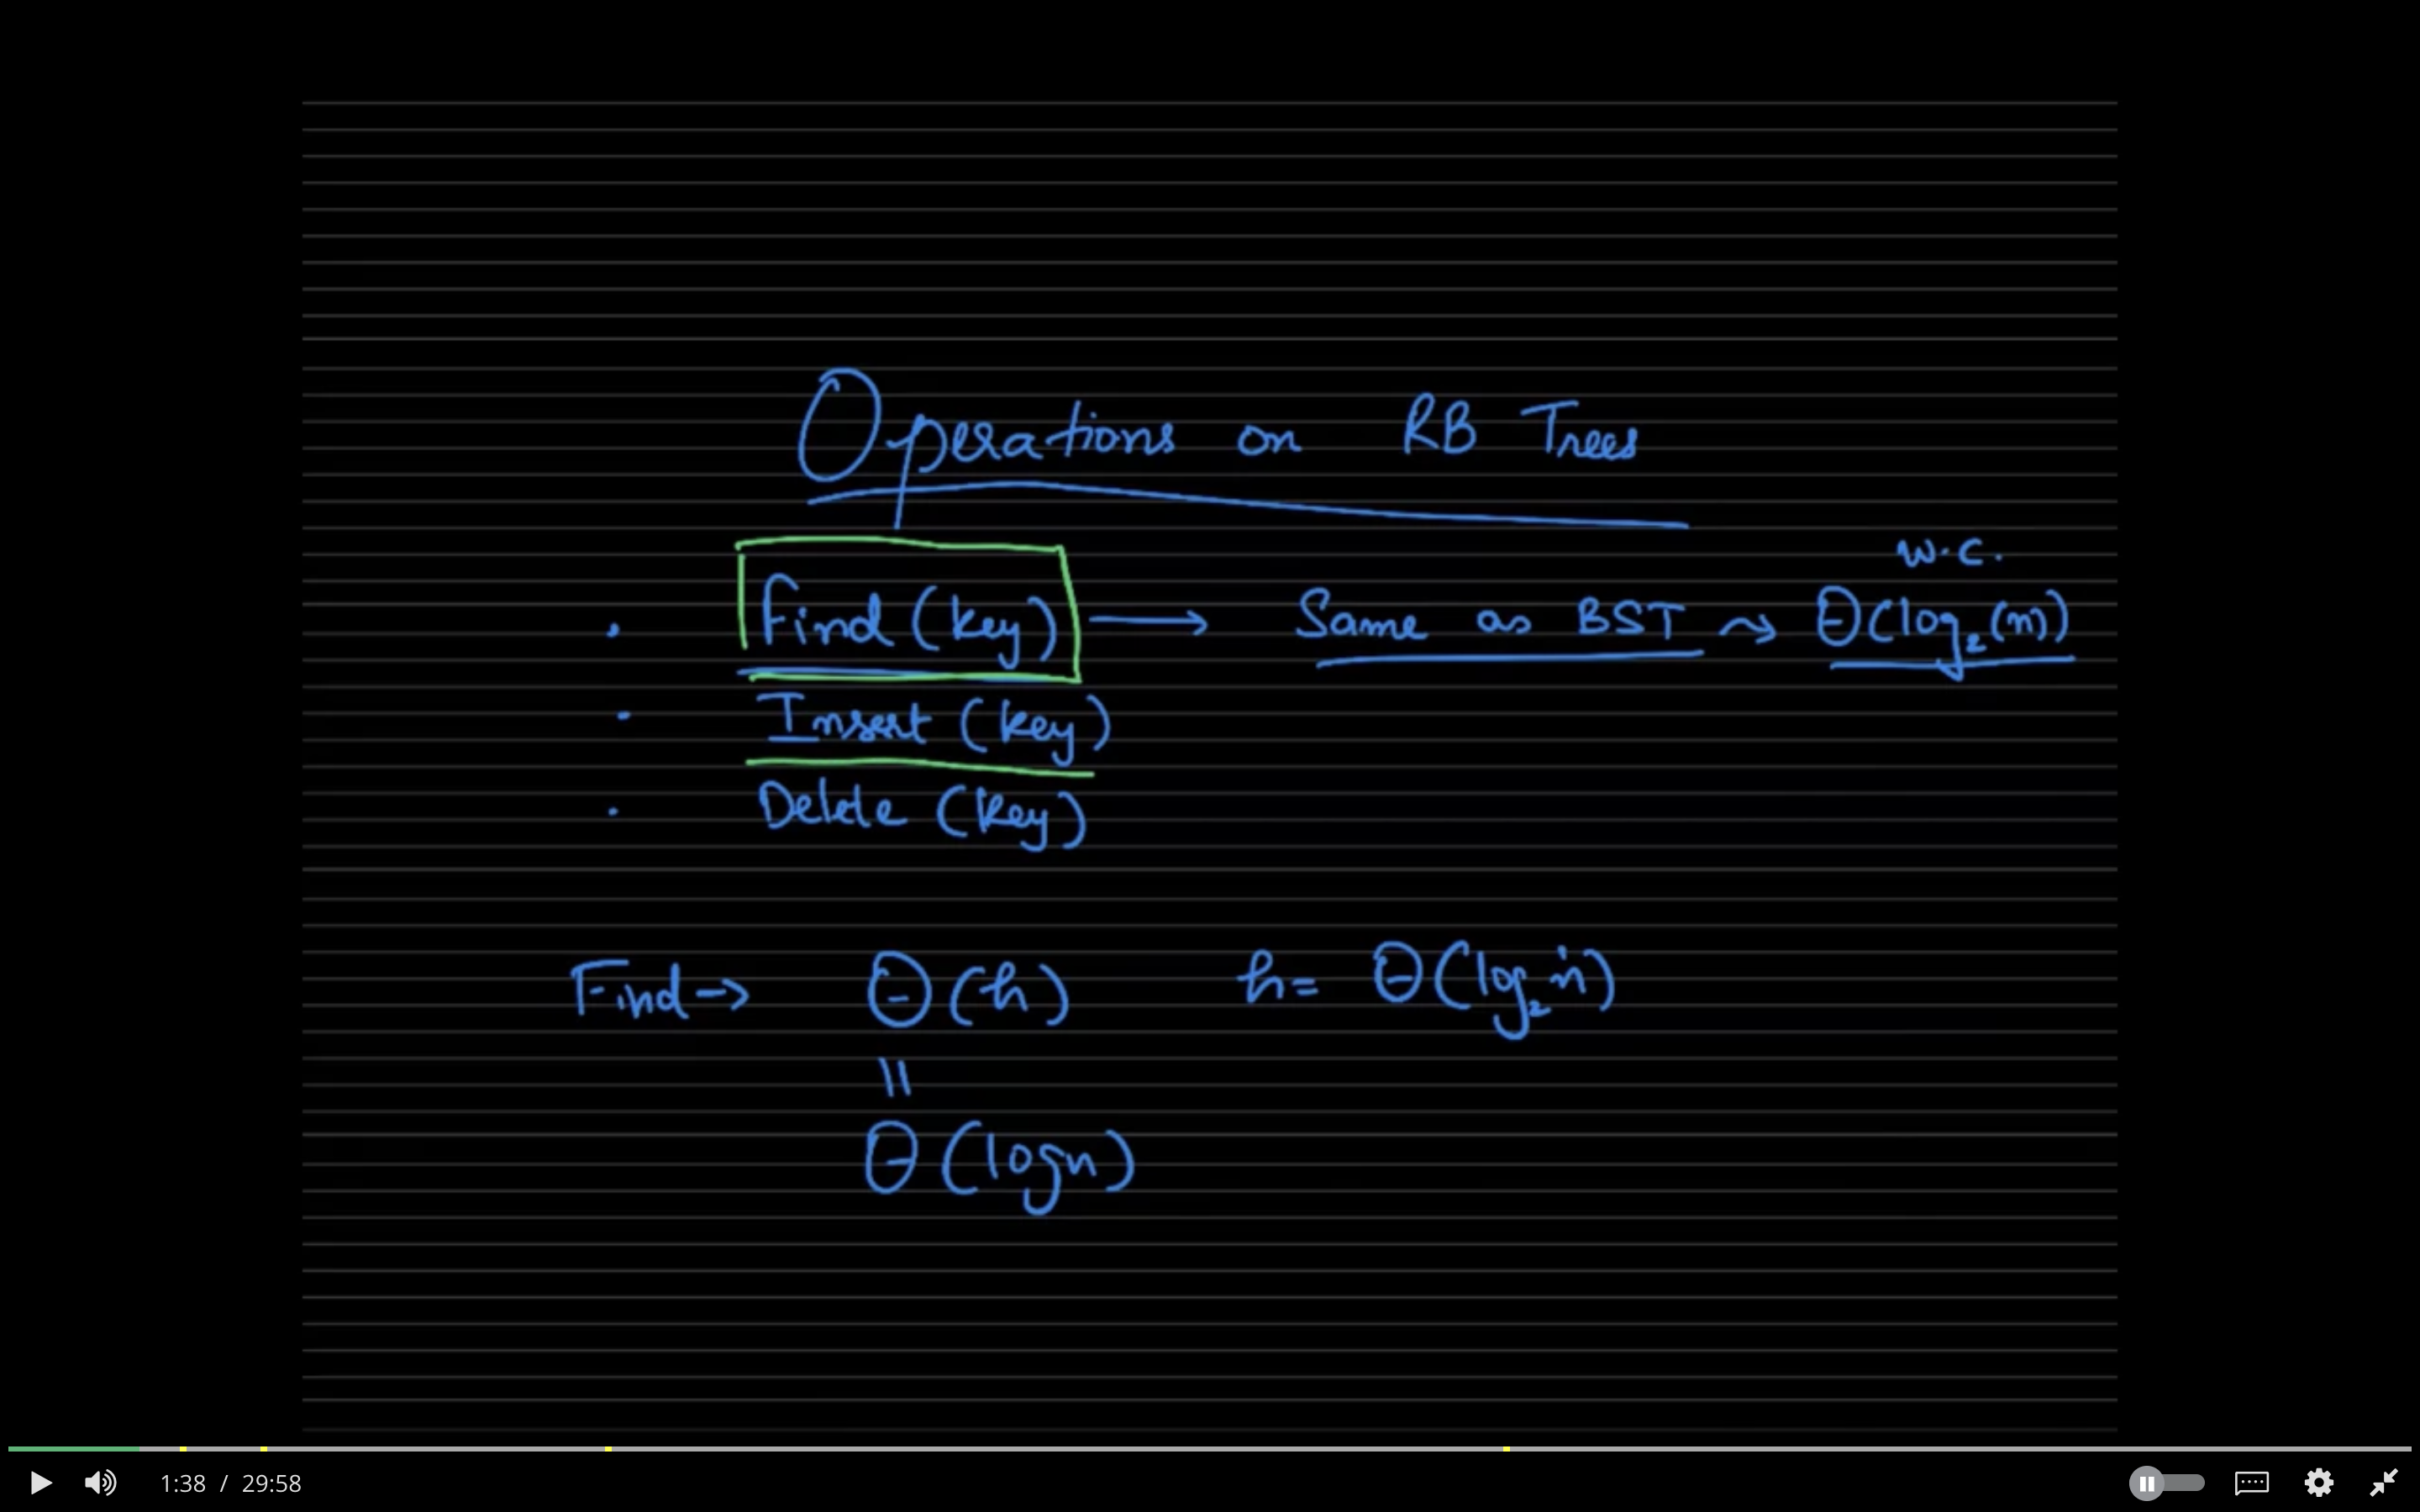 Operations on RB Trees
w.c.
· Find (key) → Same as BST ⤳ Θ(log₂(n))
· Insert (key)
· Delete (key)
Find → Θ(h) h = Θ(log₂n)
||
Θ(logn)
1:38 / 29:58